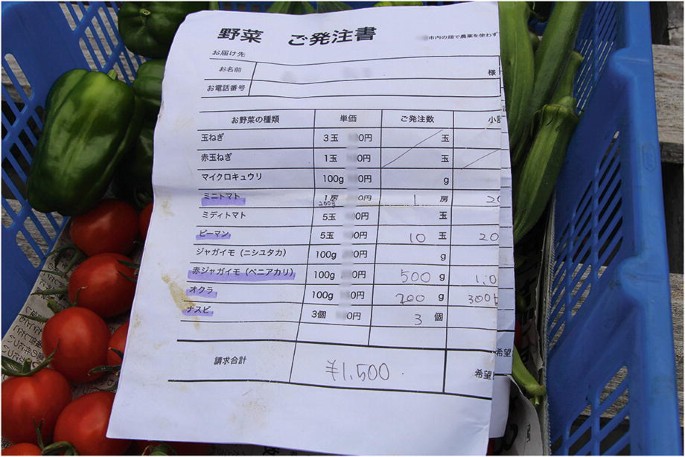 野菜 ご発注書
市内の畑で農薬を使わず
お届け先
お名前 様
お電話番号
お野菜の種類 単価 ご発注数 小
玉ねぎ 3玉 0円 玉
赤玉ねぎ 1玉 0円 玉
マイクロキュウリ 100g 0円 g
ミニトマト 1房 0円 1 房 20
ミディトマト 5玉 0円 玉
ピーマン 5玉 0円 10 玉 20
ジャガイモ(ニシユタカ) 100g 0円 g
赤ジャガイモ(ベニアカリ) 100g 0円 500 g 1,0
オクラ 100g 0円 200 g 300
ナスビ 3個 0円 3 個
請求合計 ¥1,500 希望
希望